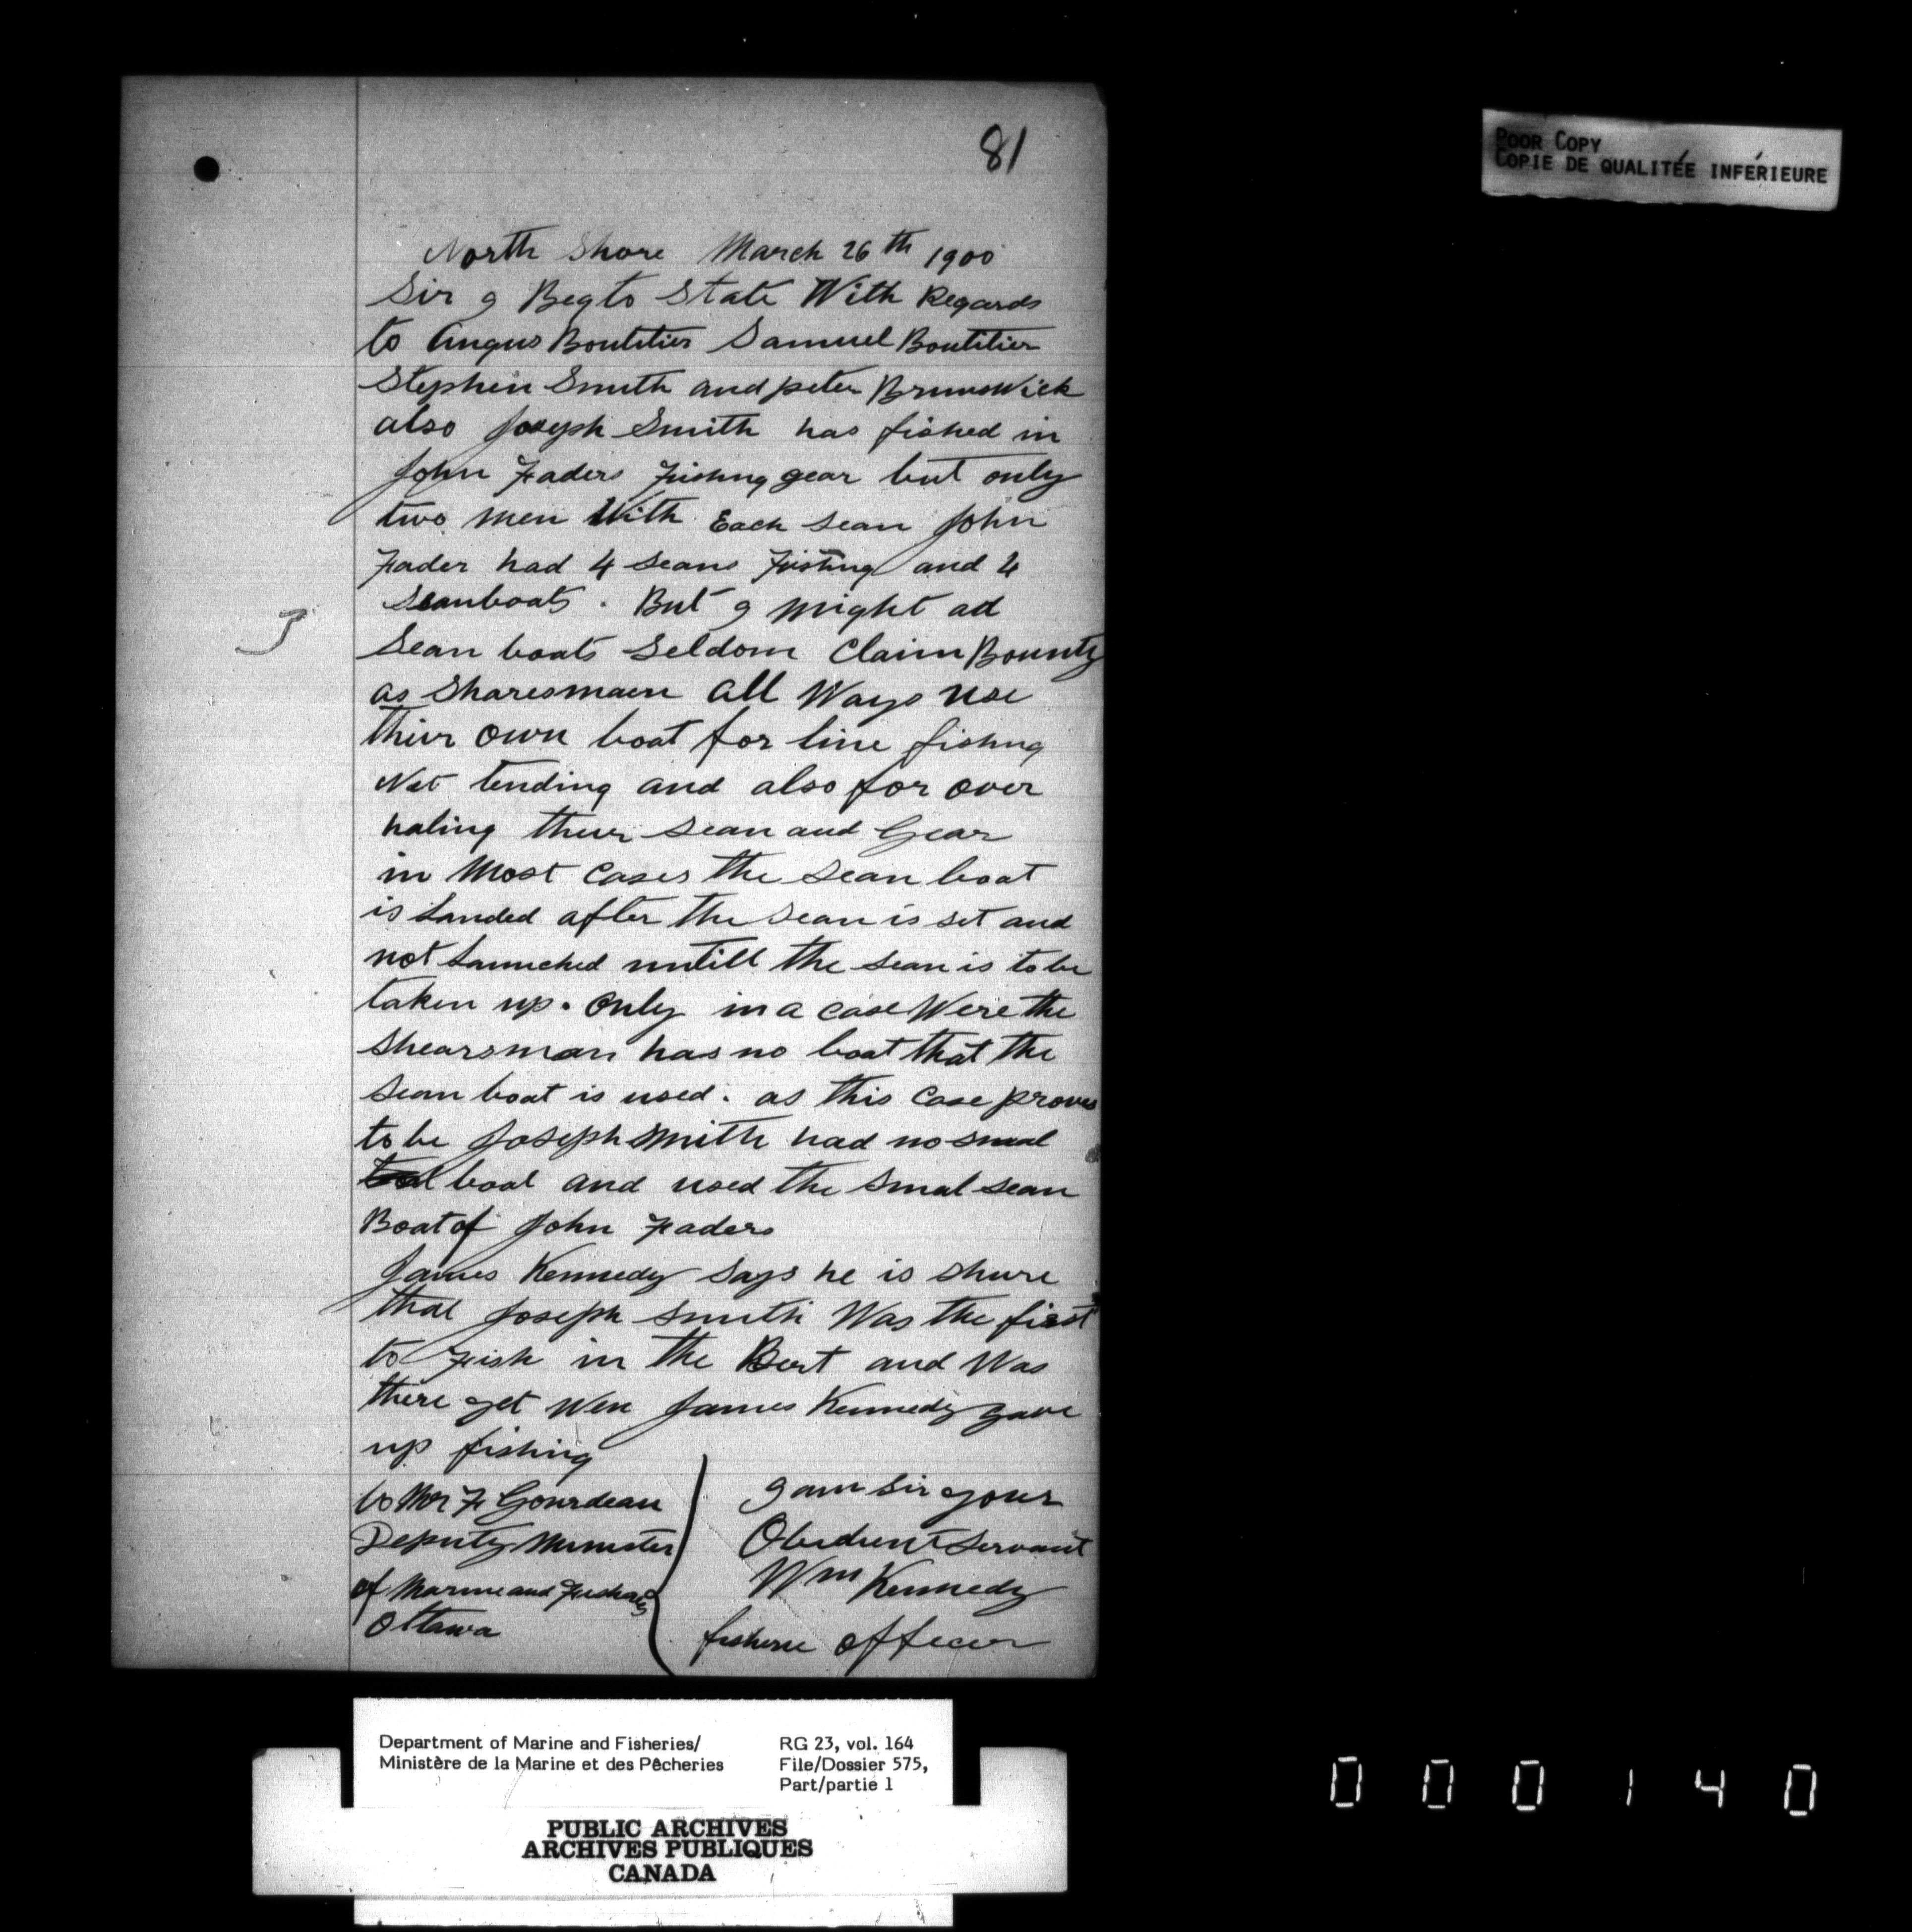 81
POOR COPY
COPIE DE QUALITÉE INFÉRIEURE
North Shore March 26th 1900
Sir I Beg to State With Regards
to Angus Boutilier Samuel Boutilier
Stephen Smith and peter Brunswick
also Joseph Smith has fished in
John Faders Fishing gear but only
two men With Each sean John
Fader had 4 seans Fishing and 4
Seanboats. But I might ad
Sean boats Seldom Claim Bounty
as Sharesmaen all Ways use
their own boat for line fishing
Net tending and also for over
haling their sean and Gear
in Most Cases the sean boat
is Landed after the sean is set and
not Launched untill the sean is to be
taken up. Only in a case Were the
Shearsman has no boat that the
Sean boat is used. as this Case proves
to be Joseph Smith had no smal
boat and used the smal sean
Boat of John Faders
James Kennedy Says he is shure
that Joseph Smith Was the first
to Fish in the Bort and Was
there yet Wen James Kennedy gave
up fishing
to Mr F Gourdeau
Deputy Minister
of Marine and Fisheries
Ottawa
I am Sir your
Obedient Servant
Wm Kennedy
fisherie officer
Department of Marine and Fisheries/
Ministère de la Marine et des Pêcheries
RG 23, vol. 164
File/Dossier 575,
Part/partie 1
PUBLIC ARCHIVES
ARCHIVES PUBLIQUES
CANADA
000140